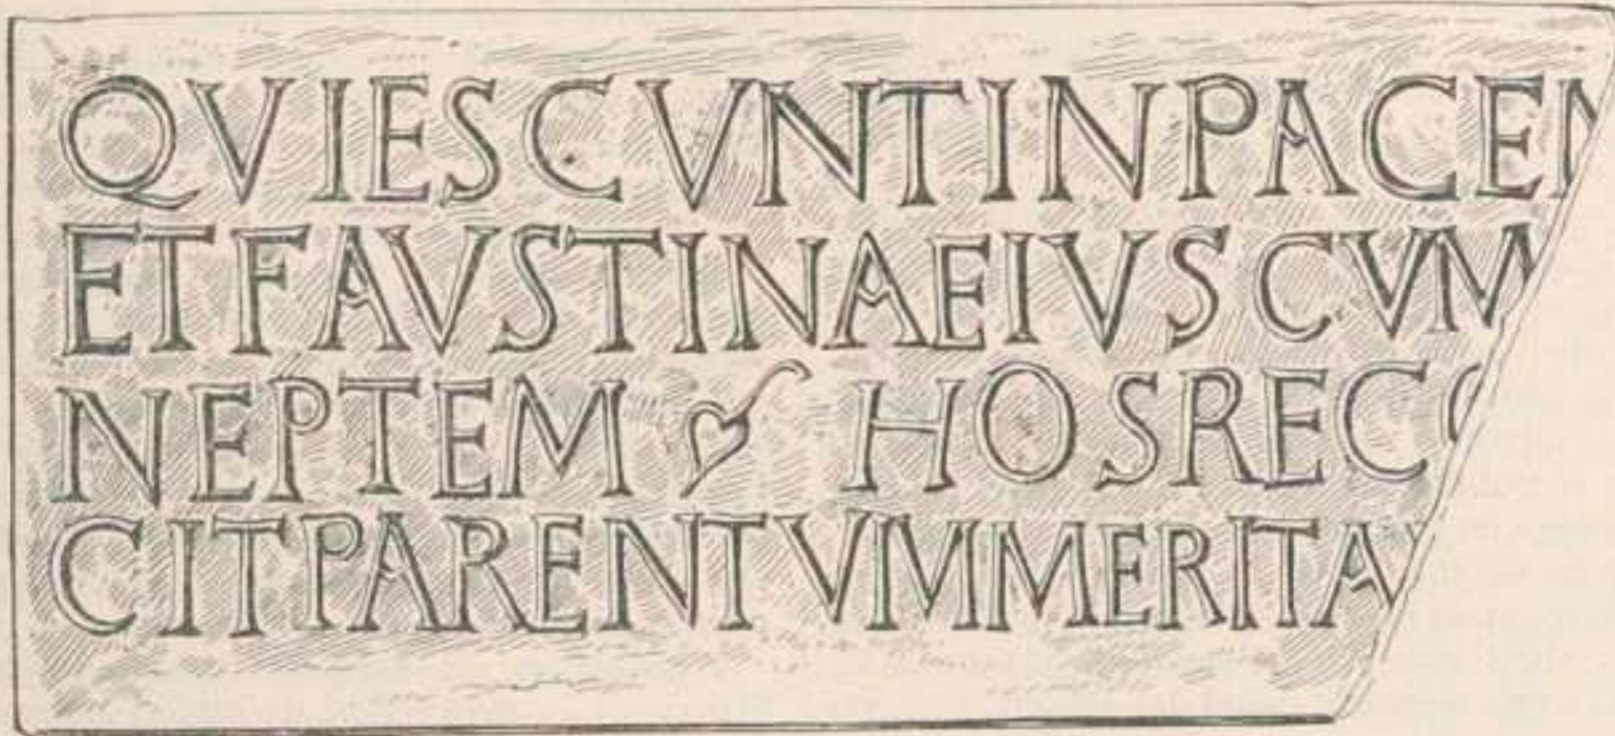 QVIESCVNTINPACEN
ETFAVSTINAEIVSCVM
NEPTEM ❦ HOSREC
CITPARENTVMMERITA